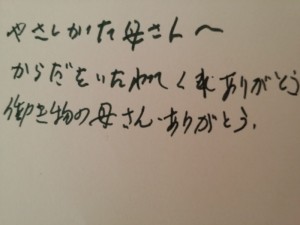 やさしかった母さんへ
からだをいたわてくれありがとう
働き物の母さん.ありがとう.